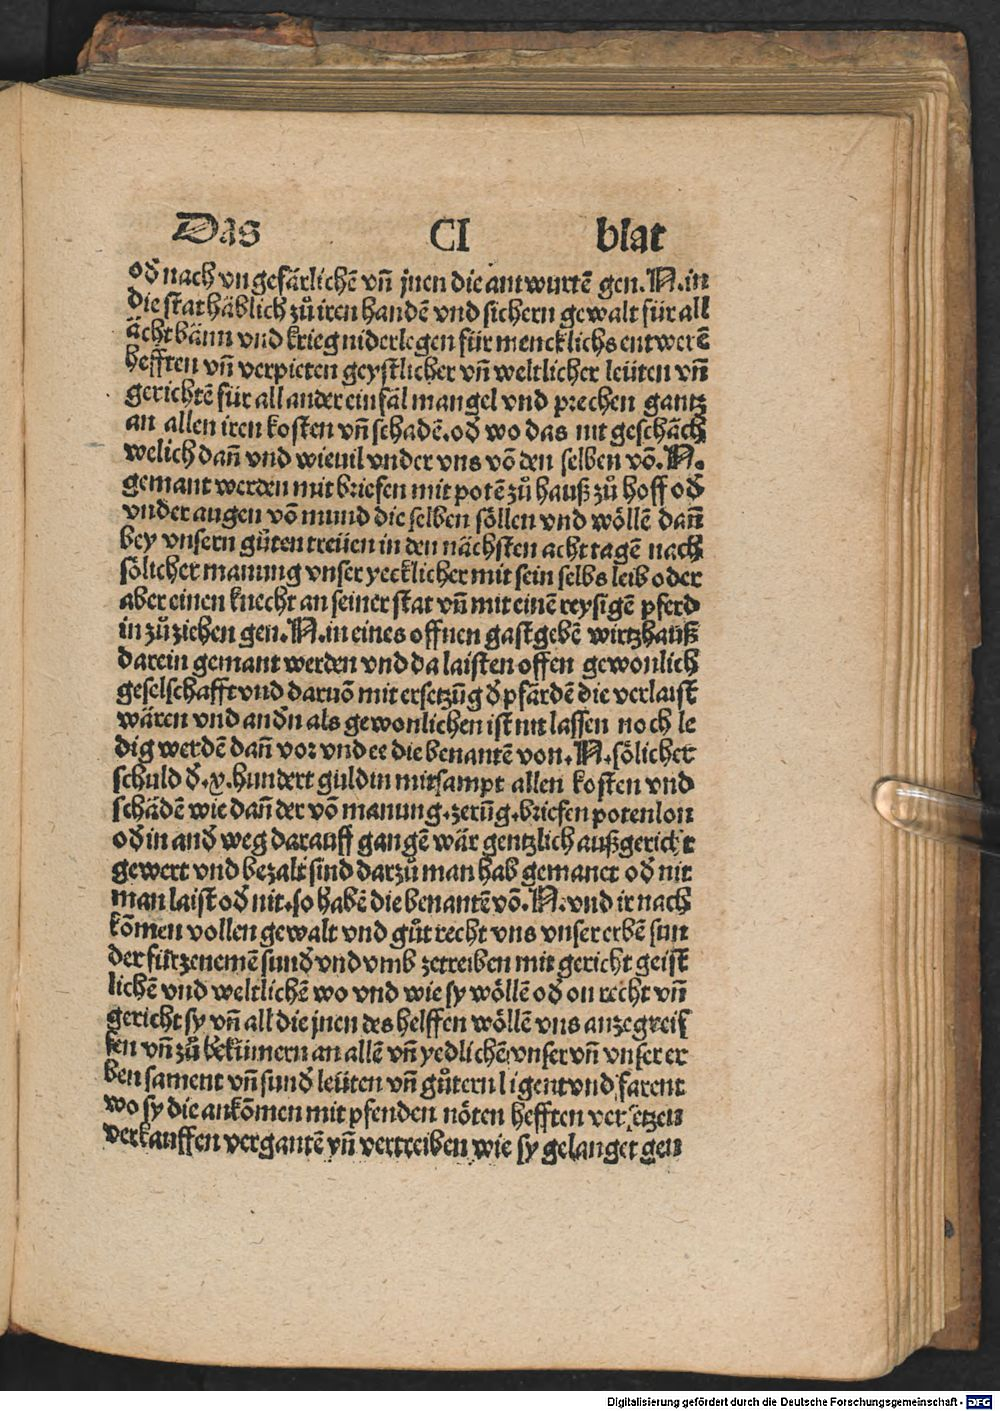 Das CI blat
od̕ nach vngefärlichē vn̄ jnen die antwurtē gen. N. in
die stat häblich zů iren handē vnd sichern gewalt für all
ächt bänn vnd krieg niderlegen für mencklichs entwerē
hefften vn̄ verpieten geystlicher vn̄ weltlicher leüten vn̄
gerichtē für all ander einfäl mangel vnd prechen gantz
an allen iren kosten vn̄ schadē. od̕ wo das nit geschäch
welich dan̄ vnd wieuil vnder vns vō den selben vō. N.
gemant werden mit briefen mit potē zů hauß zů hoff od̕
vnder augen vō mund die selben söllen vnd wöllē dan̄
bey vnsern gůten treüen in den nächsten acht tagē nach
sölicher manung vnser yecklicher mit sein selbs leib oder
aber einen knecht an seiner stat vn̄ mit einē reysigē pferd
in zů ziehen gen. N. in eines offnen gastgebē wirtzhauß
darein gemant werden vnd da laisten offen gewonlich
geselschafft vnd daruō mit ersetzūg d̕ pfärdē die verlaist
wären vnd and̕n als gewonlichen ist nit lassen noch le
dig werdē dan̄ vor vnd ee die benantē von. N. sölicher
schuld d̕. x. hundert guldin mitsampt allen kosten vnd
schädē wie dan̄ der vō manung. zerūg. briefen potenlon
od̕ in and̕ weg darauff gangē wär gentzlich außgericht
gewert vnd bezalt sind darzů man hab gemanet od̕ nit
man laist od̕ nit. so habē die benantē vō. N. vnd ir nach
kōmen vollen gewalt vnd gůt recht vns vnser erbē sun
der fürzenemē sund̕ vnd vmb zetreiben mit gericht geist
lichē vnd weltlichē wo vnd wie sy wöllē od̕ on recht vn̄
gericht sy vn̄ all die jnen des helffen wöllē vns anzegreif
fen vn̄ zů bekümern an allē vn̄ yedlichē vnser vn̄ vnser er
ben sament vn̄ sund̕ leüten vn̄ gůtern ligent vnd farent
wo sy die ankōmen mit pfenden nöten hefften versetzen
verkauffen vergantē vn̄ vertreiben wie sy gelanget gen
Digitalisierung gefördert durch die Deutsche Forschungsgemeinschaft - DFG